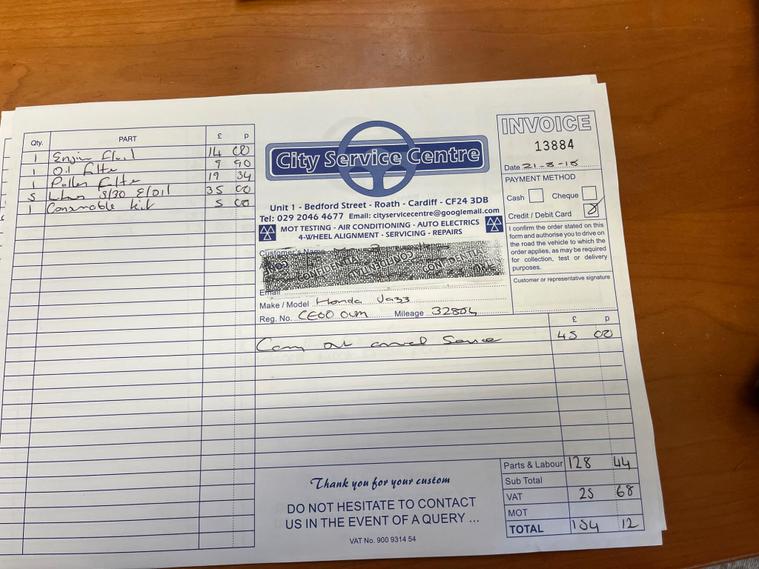 Qty. PART £ p
1 Engine Fluid 14 00
1 Oil Filter 9 90
1 Pollen Filter 19 54
5 Litres 5/30 E/Oil 35 00
1 Consumable Kit 5 00
City Service Centre
Unit 1 - Bedford Street - Roath - Cardiff - CF24 3DB
Tel: 029 2046 4677 Email: cityservicecentre@googlemail.com
MOT TESTING - AIR CONDITIONING - AUTO ELECTRICS
4-WHEEL ALIGNMENT - SERVICING - REPAIRS
Customer's Name
Email
Make / Model Honda Jazz
Reg. No. Mileage
£ p
Carry out annual Service 45 00
INVOICE
13884
Date
PAYMENT METHOD
Cash Cheque
Credit / Debit Card
I confirm the order stated on this
form and authorise you to drive on
the road the vehicle to which the
order applies, as may be required
for collection, test or delivery
purposes.
Customer or representative signature
Parts & Labour 128 44
Sub Total
VAT 25 68
MOT
TOTAL 154 12
Thank you for your custom
DO NOT HESITATE TO CONTACT
US IN THE EVENT OF A QUERY ...
VAT No. 900 9314 54